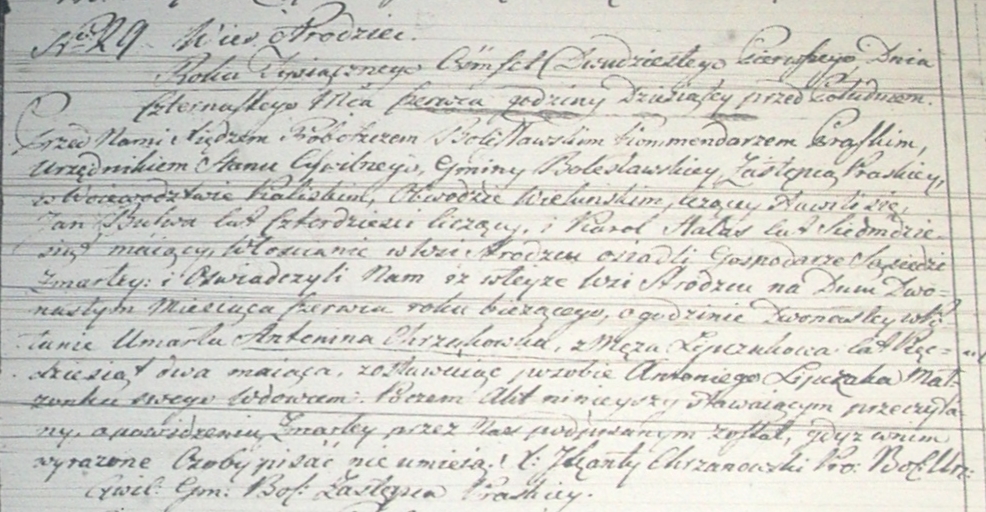 Nro 29. Wieś Strodziec.
Roku Tysiącznego Ośmset Dwudziestego Pierwszego, Dnia
Czternastego Mca Czerwca godziny Dziesiątey przed Południem.
Przed Nami Xiędzem Proboszczem Bolesławskim Kommendarzem Praskim,
Urzędnikiem Stanu Cywilnego, Gminy Bolesławskiey, Zastępcą Praskiey,
w Woiewodztwie Kaliskim, Obwodzie Wieluńskim, Stawili się,
Jan Bulwa lat Czterdzieści liczący, i Karol Hałas lat Siedmdzie-
siąt maiący, Włościanie w wsi Strodzcu osiadli Gospodarze Sąsiedzi
Zmarłey: i Oświadczyli Nam iż w teyże wsi Strodzcu na Dniu Dwu-
nastym Miesiąca Czerwca roku bieżącego, o godzinie Dwunastey w
Umarła Antonina Chrzukowska, z Męża Lipczakowa lat Pięć-
dziesiąt dwa maiąca, zostawiwszy po sobie Antoniego Lipczaka Mał-
żonka swego Wdowcem. Poczem Akt ninieyszy stawaiącym przeczyta-
ny, a po Zmarłey przez Nas podpisanym został, gdyż w nim
wyrażone Osoby pisać nie umieią. X: JKanty Chrzanowski Pro: Bol: Urz:
Cywil: Gm: Bol: Zastępca Praskiey.